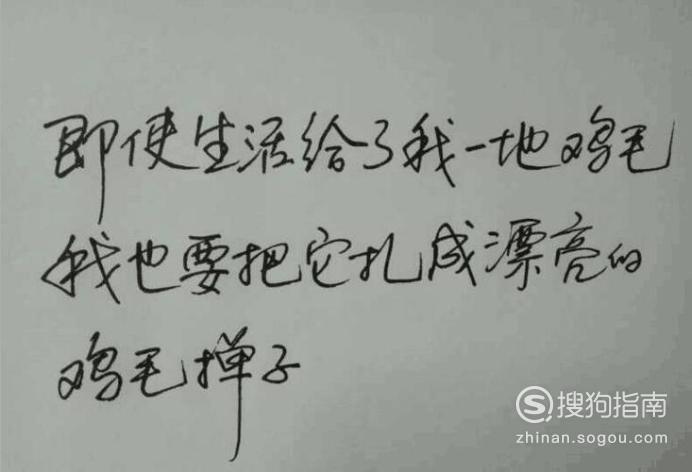 即使生活给了我一地鸡毛
我也要把它扎成漂亮的
鸡毛掸子
S 搜狗指南
zhinan.sogou.com